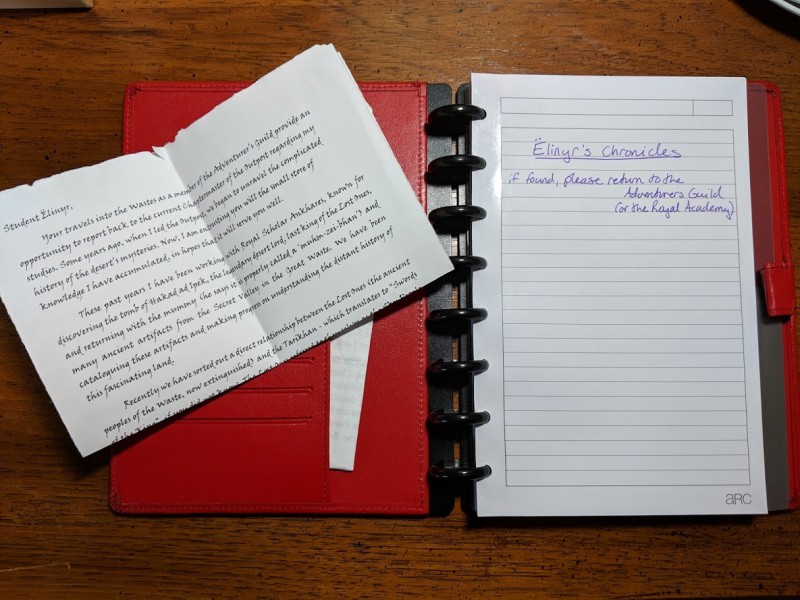 Student Ëlinyr,
Your travels into the Wastes as a member of the Adventurer's Guild provide an
opportunity to report back to the current Quartermaster of the Outpost regarding my
studies. Some years ago, when I led the Outpost, I began to unravel the complicated
history of the desert's mysteries. Now, I am granting you the small store of
knowledge I have accumulated, in hopes that it will serve you well.
These past years I have been working with Royal Scholar Ankhares, known for
discovering the tomb of Hakad ad Ipek, the legendary desert lord, last king of the Lost Ones,
and returning with the mummy (he says it is properly called a 'muhm-zei-bhan') and
many ancient artifacts from the Secret Valley in the Great Waste. We have been
cataloguing these artifacts and making progress on understanding the distant history of
this fascinating land.
Recently we have sorted out a direct relationship between the Lost Ones (the ancient
peoples of the Waste, now extinguished) and the Tarikhan - which translates to "Swords
of the
Ëlinyr's Chronicles
if found, please return to the
Adventurers Guild
(or the Royal Academy)
ARC